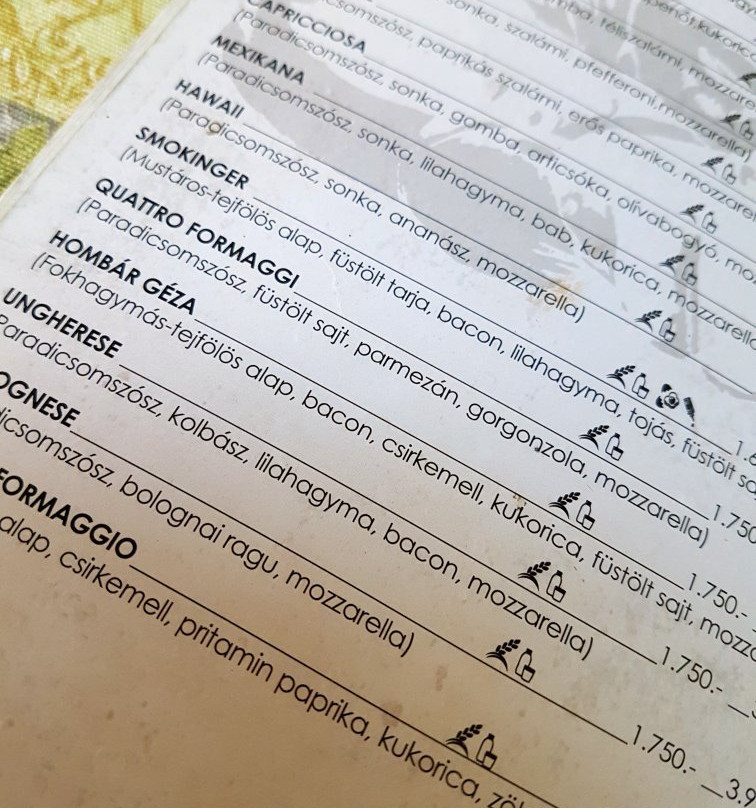 sonka, szalámi, pfefferoni, mozzarella)
paprikás szalámi, erős paprika,
CAPRICCIOSA
(Paradicsomszósz, sonka, gomba, articsóka, olívabogyó,
MEXIKANA
(Paradicsomszósz, sonka, lilahagyma, bab, kukorica,
HAWAII
(Paradicsomszósz, sonka, ananász, mozzarella)
SMOKINGER
(Mustáros-tejfölös alap, füstölt tarja, bacon, lilahagyma, tojás, füstölt
QUATTRO FORMAGGI 1.750
(Paradicsomszósz, füstölt sajt, parmezán, gorgonzola, mozzarella)
HOMBÁR GÉZA 1.750.-
(Fokhagymás-tejfölös alap, bacon, csirkemell, kukorica, füstölt sajt,
UNGHERESE 1.750.-
Paradicsomszósz, kolbász, lilahagyma, bacon, mozzarella)
OGNESE 1.750.- 3.9
dicsomszósz, bolognai ragu, mozzarella)
FORMAGGIO
alap, csirkemell, pritamin paprika, kukorica,